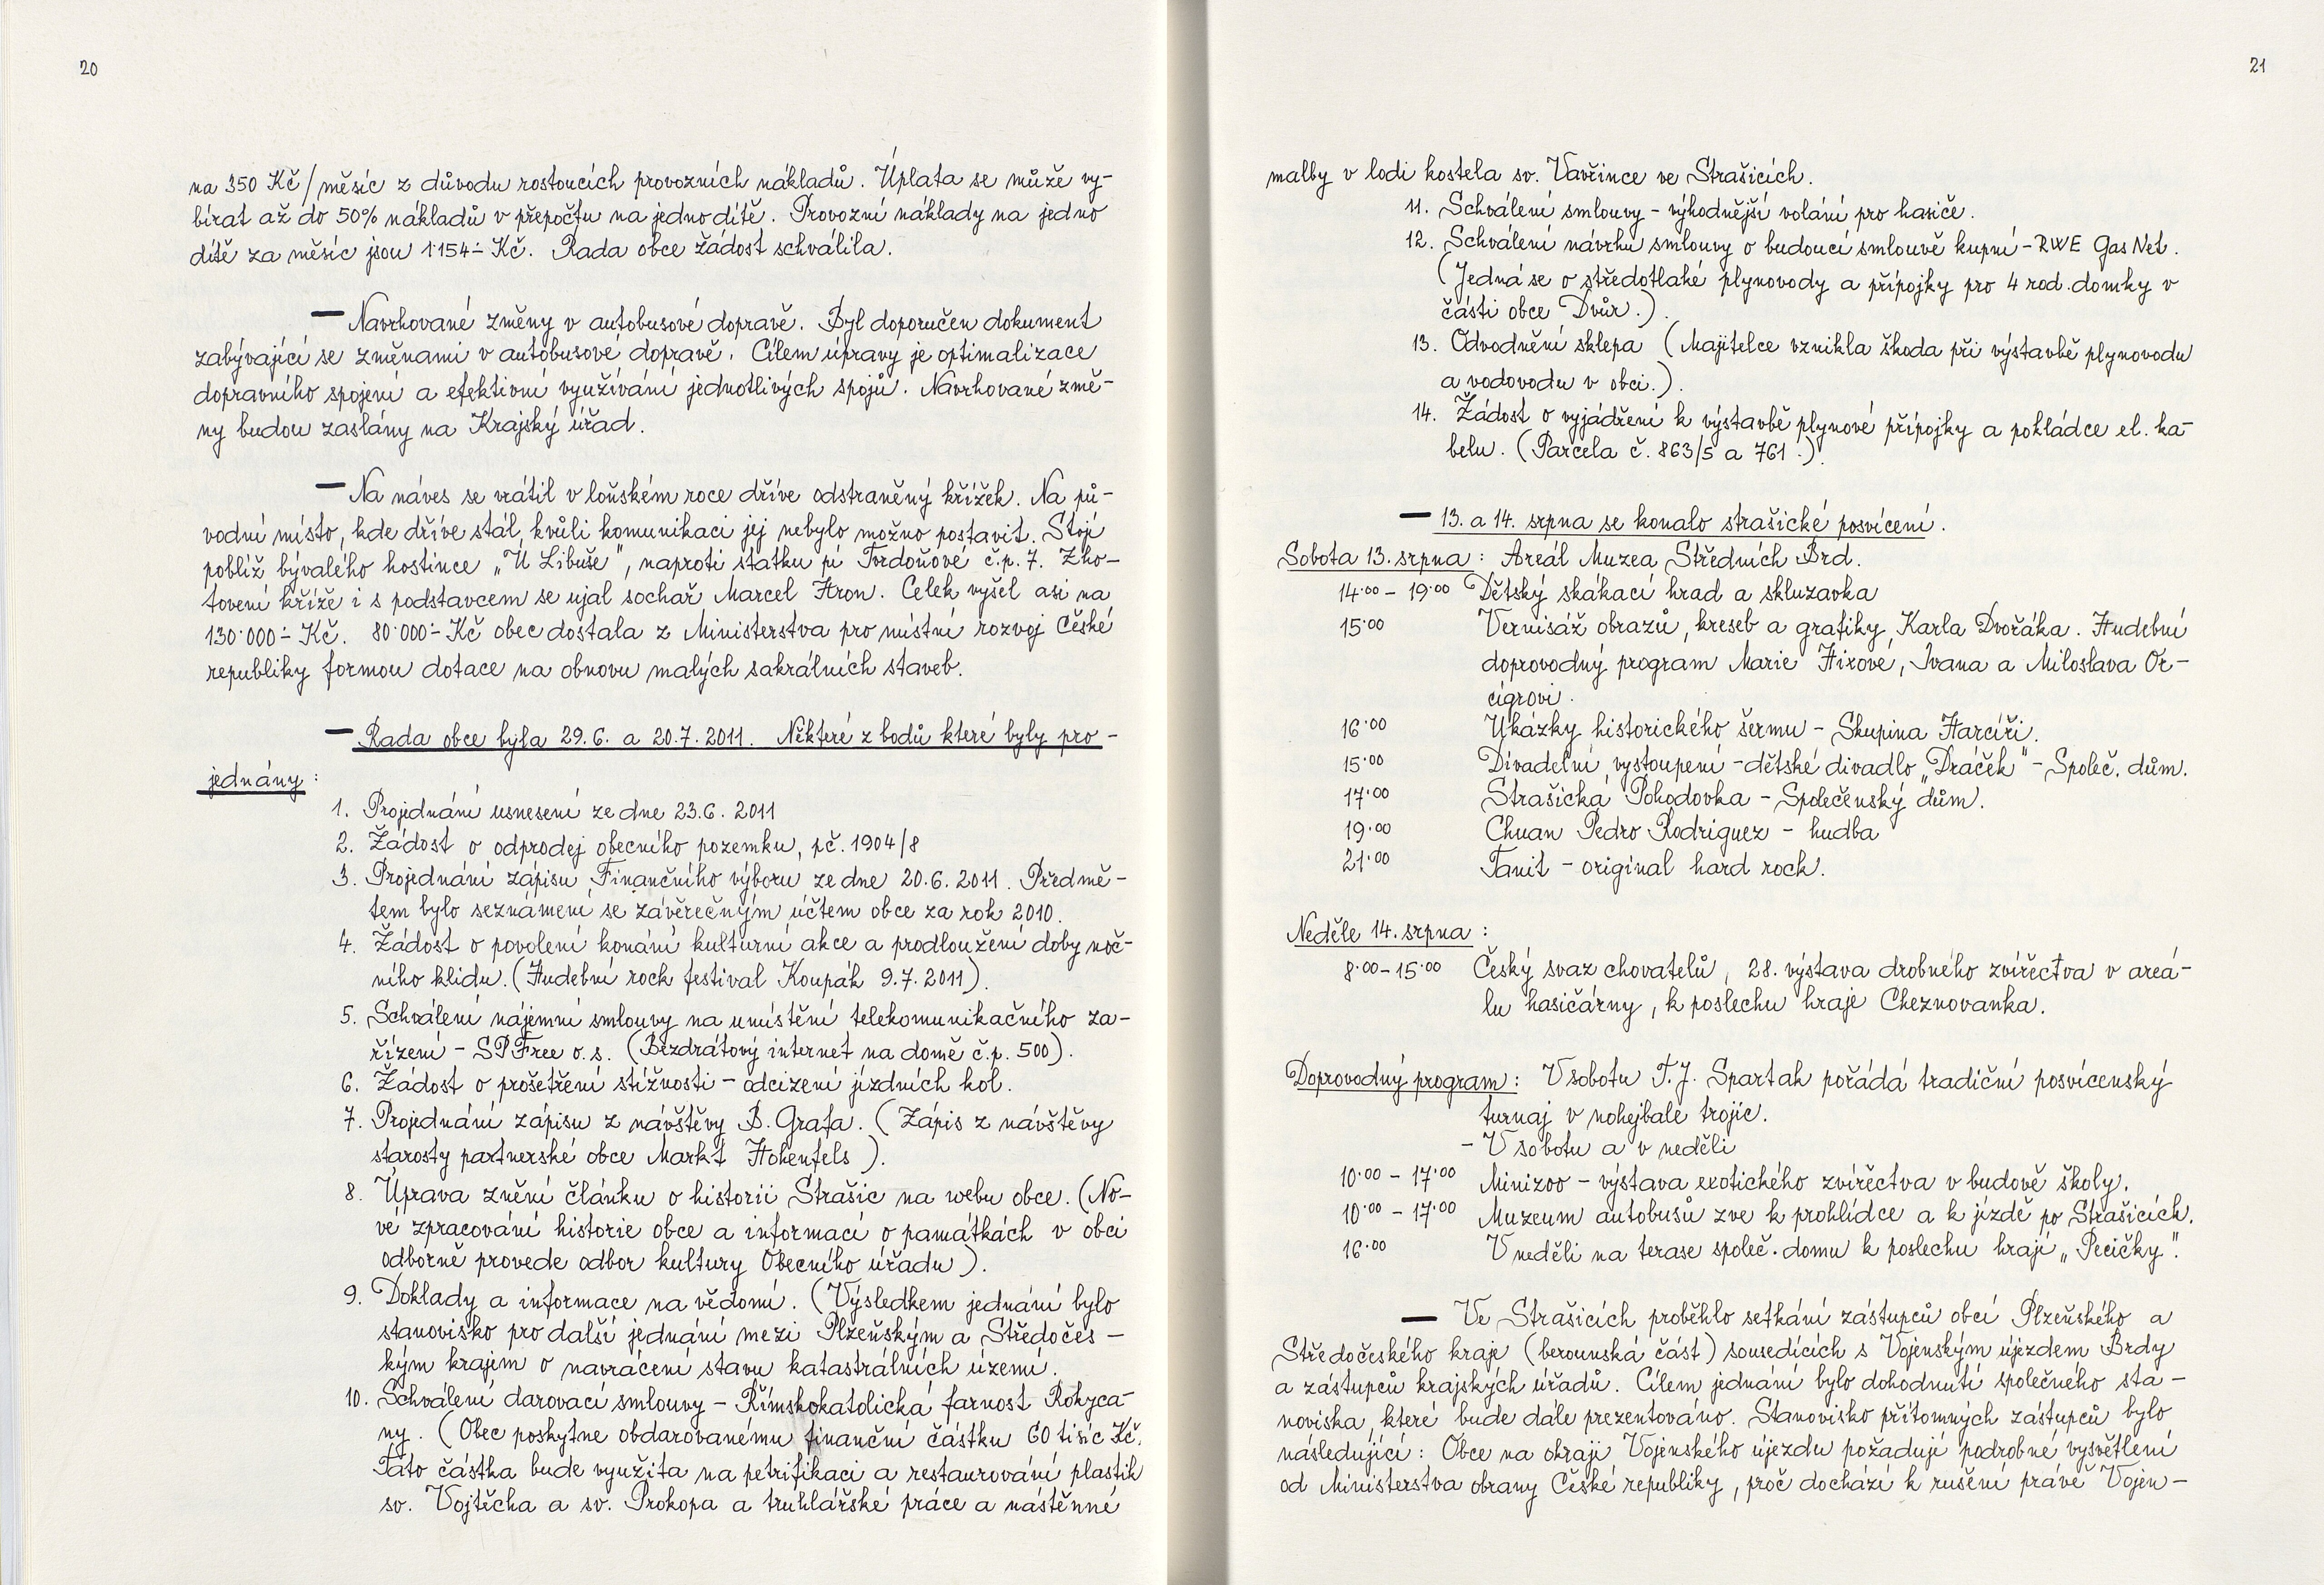 20
na 350 Kč/měsíc z důvodu rostoucích provozních nákladů. Úplata se může vy-
bírat až do 50% nákladů v přepočtu na jedno dítě. Provozní náklady na jedno
dítě za měsíc jsou 1'154.- Kč. Rada obce žádost schválila.
— Navrhované změny v autobusové dopravě. Byl doporučen dokument
zabývající se změnami v autobusové dopravě. Cílem úpravy je optimalizace
dopravního spojení a efektivní využívání jednotlivých spojů. Navrhované změ-
ny budou zaslány na Krajský úřad.
— Na náves se vrátil v loňském roce dříve odstraněný křížek. Na pů-
vodní místo, kde dříve stál, kvůli komunikaci jej nebylo možno postavit. Stojí
poblíž bývalého hostince „U Libuše", naproti statku pí Tvrdoňové č.p. 7. Zho-
tovení kříže i s podstavcem se ujal sochař Marcel Hron. Celek vyšel asi na
130'000.- Kč. 80'000.- Kč obec dostala z Ministerstva pro místní rozvoj České
republiky formou dotace na obnovu malých sakrálních staveb.
— Rada obce byla 29.6. a 20.7.2011. Některé z bodů které byly pro-
jednány:
1. Projednání usnesení ze dne 23.6. 2011
2. Žádost o odprodej obecního pozemku, pč. 1904/8
3. Projednání zápisu Finančního výboru ze dne 20.6.2011. Předmě-
tem bylo seznámení se závěrečným účtem obce za rok 2010.
4. Žádost o povolení konání kulturní akce a prodloužení doby noč-
ního klidu. (Hudební rock festival Koupák 9.7.2011).
5. Schválení nájemní smlouvy na umístění telekomunikačního za-
řízení - SPFree o.s. (Bezdrátový internet na domě č.p. 500).
6. Žádost o prošetření stížnosti - odcizení jízdních kol.
7. Projednání zápisu z návštěvy B. Grafa. (Zápis z návštěvy
starosty partnerské obce Markt Hohenfels).
8. Úprava znění článku o historii Strašic na webu obce. (No-
vé zpracování historie obce a informací o památkách v obci
odborně provede odbor kultury Obecního úřadu).
9. Doklady a informace na vědomí. (Výsledkem jednání bylo
stanovisko pro další jednání mezi Plzeňským a Středočes-
kým krajem o navrácení stavu katastrálních území.
10. Schválení darovací smlouvy - Římskokatolická farnost Rokyca-
ny. (Obec poskytne obdarovanému finanční částku 60 tisíc Kč.
Tato částka bude využita na petrifikaci a restaurování plastik
sv. Vojtěcha a sv. Prokopa a truhlářské práce a nástěnné
21
malby v lodi kostela sv. Vavřince ve Strašicích.
11. Schválení smlouvy - výhodnější volání pro hasiče.
12. Schválení návrhu smlouvy o budoucí smlouvě kupní - RWE GasNet.
(Jedná se o středotlaké plynovody a přípojky pro 4 rod. domky v
části obce Dvůr.).
13. Odvodnění sklepa (Majitelce vznikla škoda při výstavbě plynovodu
a vodovodu v obci.).
14. Žádost o vyjádření k výstavbě plynové přípojky a pokládce el. ka-
belu. (Parcela č. 863/5 a 761.).
— 13. a 14. srpna se konalo strašické posvícení.
Sobota 13. srpna: Areál Muzea Středních Brd.
14.00 - 19.00 Dětský skákací hrad a skluzavka
15.00 Vernisáž obrazů, kreseb a grafiky Karla Dvořáka. Hudební
doprovodný program Marie Fixové, Ivana a Miloslava Or-
cígrovi.
16.00 Ukázky historického šermu - Skupina Harcíři.
15.00 Divadelní vystoupení - dětské divadlo „Dráček" - Společ. dům.
17.00 Strašická Pohodovka - Společenský dům.
19.00 Chuan Pedro Rodriguez - hudba
21.00 Tanit - original hard rock.
Neděle 14. srpna:
8.00-15.00 Český svaz chovatelů, 28. výstava drobného zvířectva v areá-
lu hasičárny, k poslechu hraje Cheznovanka.
Doprovodný program: V sobotu T.J. Spartak pořádá tradiční posvícenský
turnaj v nohejbale trojic.
- V sobotu a v neděli
10.00 - 17.00 Minizoo - výstava exotického zvířectva v budově školy.
10.00 - 17.00 Muzeum autobusů zve k prohlídce a k jízdě po Strašicích.
16.00 V neděli na terase společ. domu k poslechu hrají „Pecičky".
— Ve Strašicích proběhlo setkání zástupců obcí Plzeňského a
Středočeského kraje (berounská část) sousedících s Vojenským újezdem Brdy
a zástupců krajských úřadů. Cílem jednání bylo dohodnutí společného sta-
noviska, které bude dále prezentováno. Stanovisko přítomných zástupců bylo
následující: Obce na okraji Vojenského újezdu požadují podrobné vysvětlení
od Ministerstva obrany České republiky, proč dochází k rušení právě Vojen-